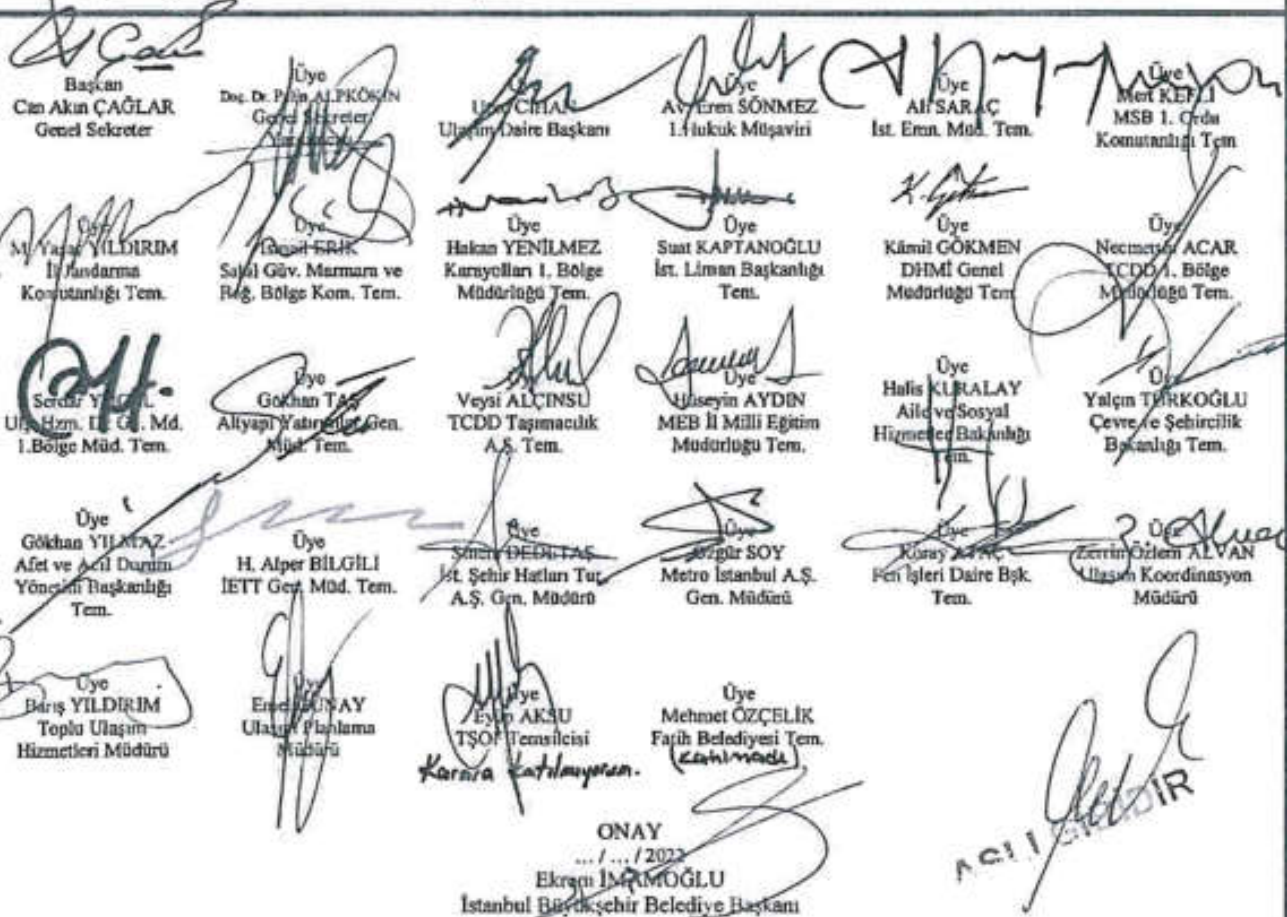 Başkan
Can Akın ÇAĞLAR
Genel Sekreter
Üye
Doç. Dr. Pelin ALPKÖKİN
Genel Sekreter
CİHAN
Ulaşım Daire Başkanı
Üye
Av. Eren SÖNMEZ
1.Hukuk Müşaviri
Üye
Ali SARAÇ
İst. Emn. Müd. Tem.
Üye
Mert
MSB 1. Ordu
Komutanlığı Tem
Üye
M. Yaşar YILDIRIM
İl Jandarma
Komutanlığı Tem.
Üye
İsmail ERİK
Sahil Güv. Marmara ve
Boğ. Bölge Kom. Tem.
Üye
Hakan YENİLMEZ
Karayolları 1. Bölge
Müdürlüğü Tem.
Üye
Suat KAPTANOĞLU
İst. Liman Başkanlığı
Tem.
Üye
Kâmil GÖKMEN
DHMİ Genel
Müdürlüğü Tem
Üye
Necmettin ACAR
TCDD 1. Bölge
Müdürlüğü Tem.
Serdar
1.Bölge Müd. Tem.
Üye
Gökhan TAŞ
Altyapı Yatırımları Gen.
Müd. Tem.
Veysi ALÇINSU
TCDD Taşımacılık
A.Ş. Tem.
Üye
Hüseyin AYDIN
MEB İl Milli Eğitim
Müdürlüğü Tem.
Üye
Halis KURALAY
Aile ve Sosyal
Hizmetler Bakanlığı
Tem.
Üye
Yalçın TÜRKOĞLU
Çevre ve Şehircilik
Bakanlığı Tem.
Üye
Gökhan YILMAZ
Afet ve Acil Durum
Yönetim Başkanlığı
Tem.
Üye
H. Alper BİLGİLİ
İETT Gen. Müd. Tem.
Üye
Sinem DEDETAŞ
İst. Şehir Hatları Tur.
A.Ş. Gen. Müdürü
Üye
Özgür SOY
Metro İstanbul A.Ş.
Gen. Müdürü
Üye
Koray ATAÇ
Fen İşleri Daire Bşk.
Tem.
Üye
Zerrin Özlem ALVAN
Ulaşım Koordinasyon
Müdürü
Üye
Barış YILDIRIM
Toplu Ulaşım
Hizmetleri Müdürü
Üye
GÜNAY
Ulaşım Planlama
Müdürü
Üye
Eyüp AKSU
TŞOF Temsilcisi
Karara katılmıyorum.
Üye
Mehmet ÖZÇELİK
Fatih Belediyesi Tem.
(katılmadı)
ONAY
... / ... / 2022
Ekrem İMAMOĞLU
İstanbul Büyükşehir Belediye Başkanı
ASLI GİBİDİR